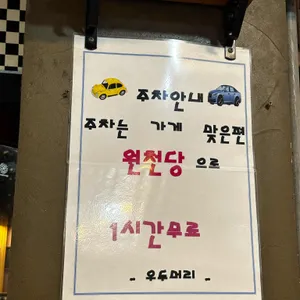 주차안내
주차는 가게 맞은편
원천당 으로
1시간무료
- 우두머리 -